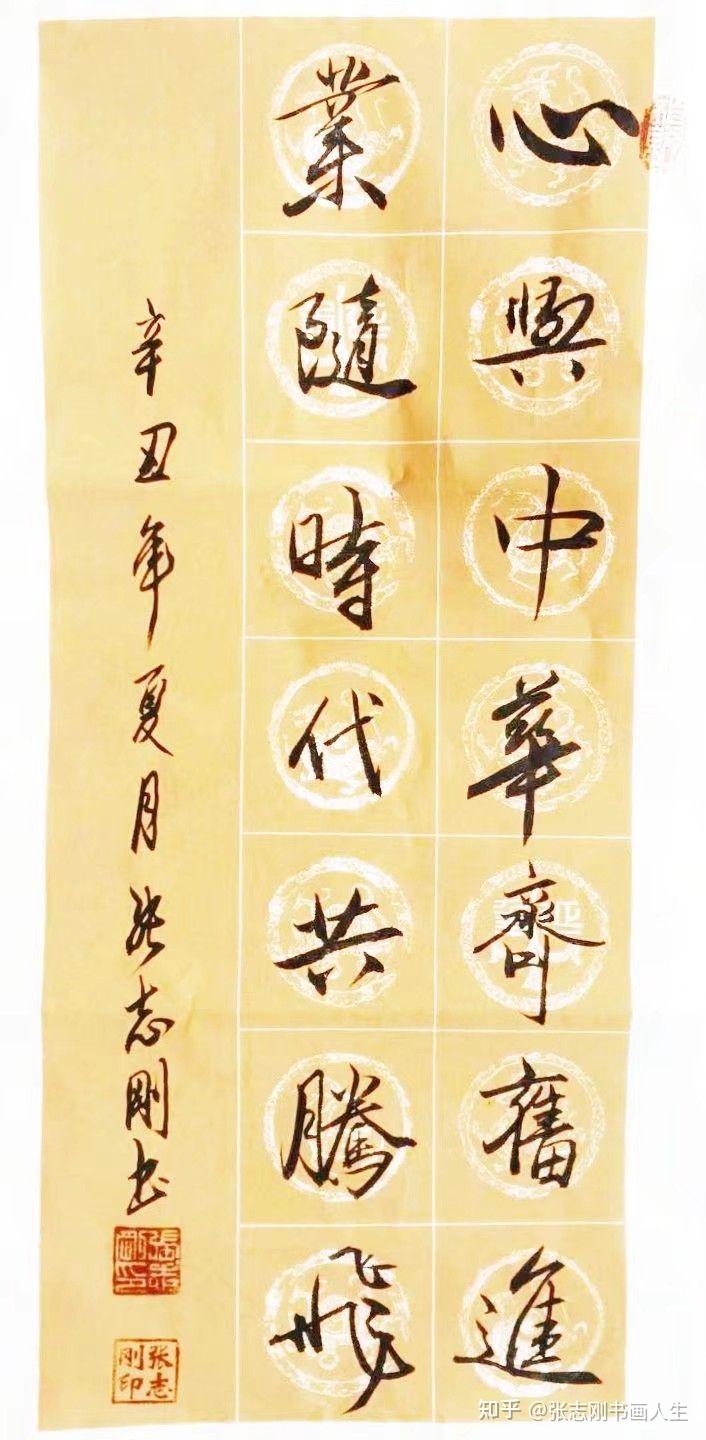 心與中華齊奮進
業隨時代共騰飛
辛丑年夏月张志剛书
张志刚印
知乎 @张志刚书画人生